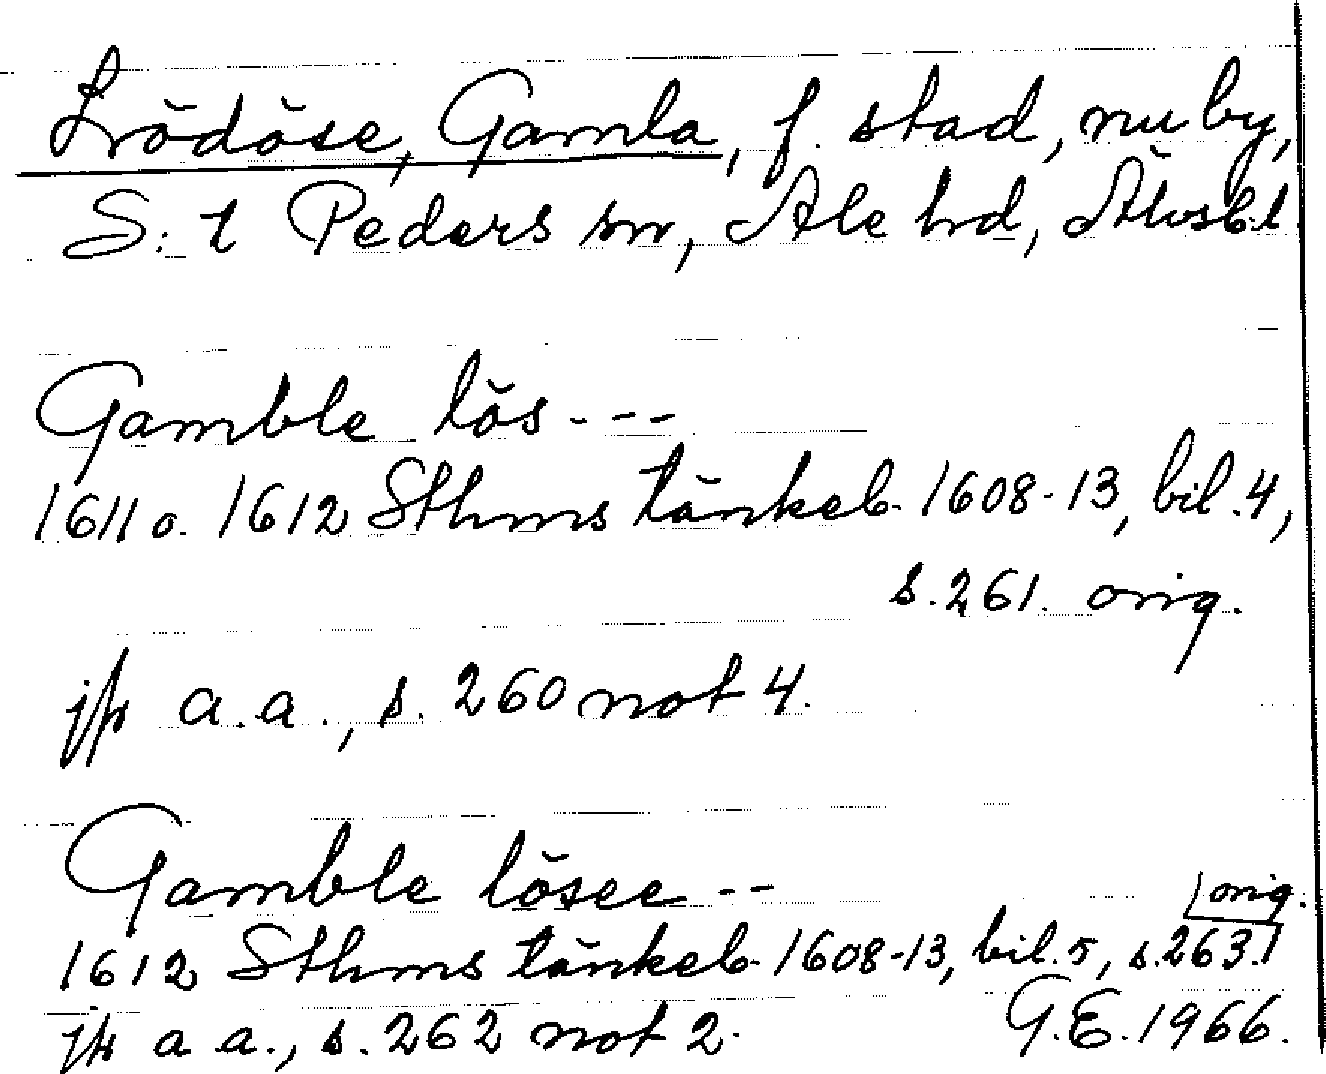 Lödöse, Gamla, f. stad, nu by,
S:t Peders sn, Ale hd, Älvsb.l.
Gamble lös - - -
1611 o. 1612 Sthms tänkeb. 1608-13, bil. 4,
s. 261. orig.
jfr a.a., s. 260 not 4.
Gamble lösee - -
orig.
1612 Sthms tänkeb. 1608-13, bil. 5, s. 263.
jfr a a., s. 262 not 2. G.E. 1966.